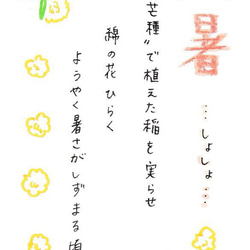 暑
…しょしょ…
芒種”で植えた稲を実らせ
綿の花 ひらく
ようやく暑さがしずまる頃